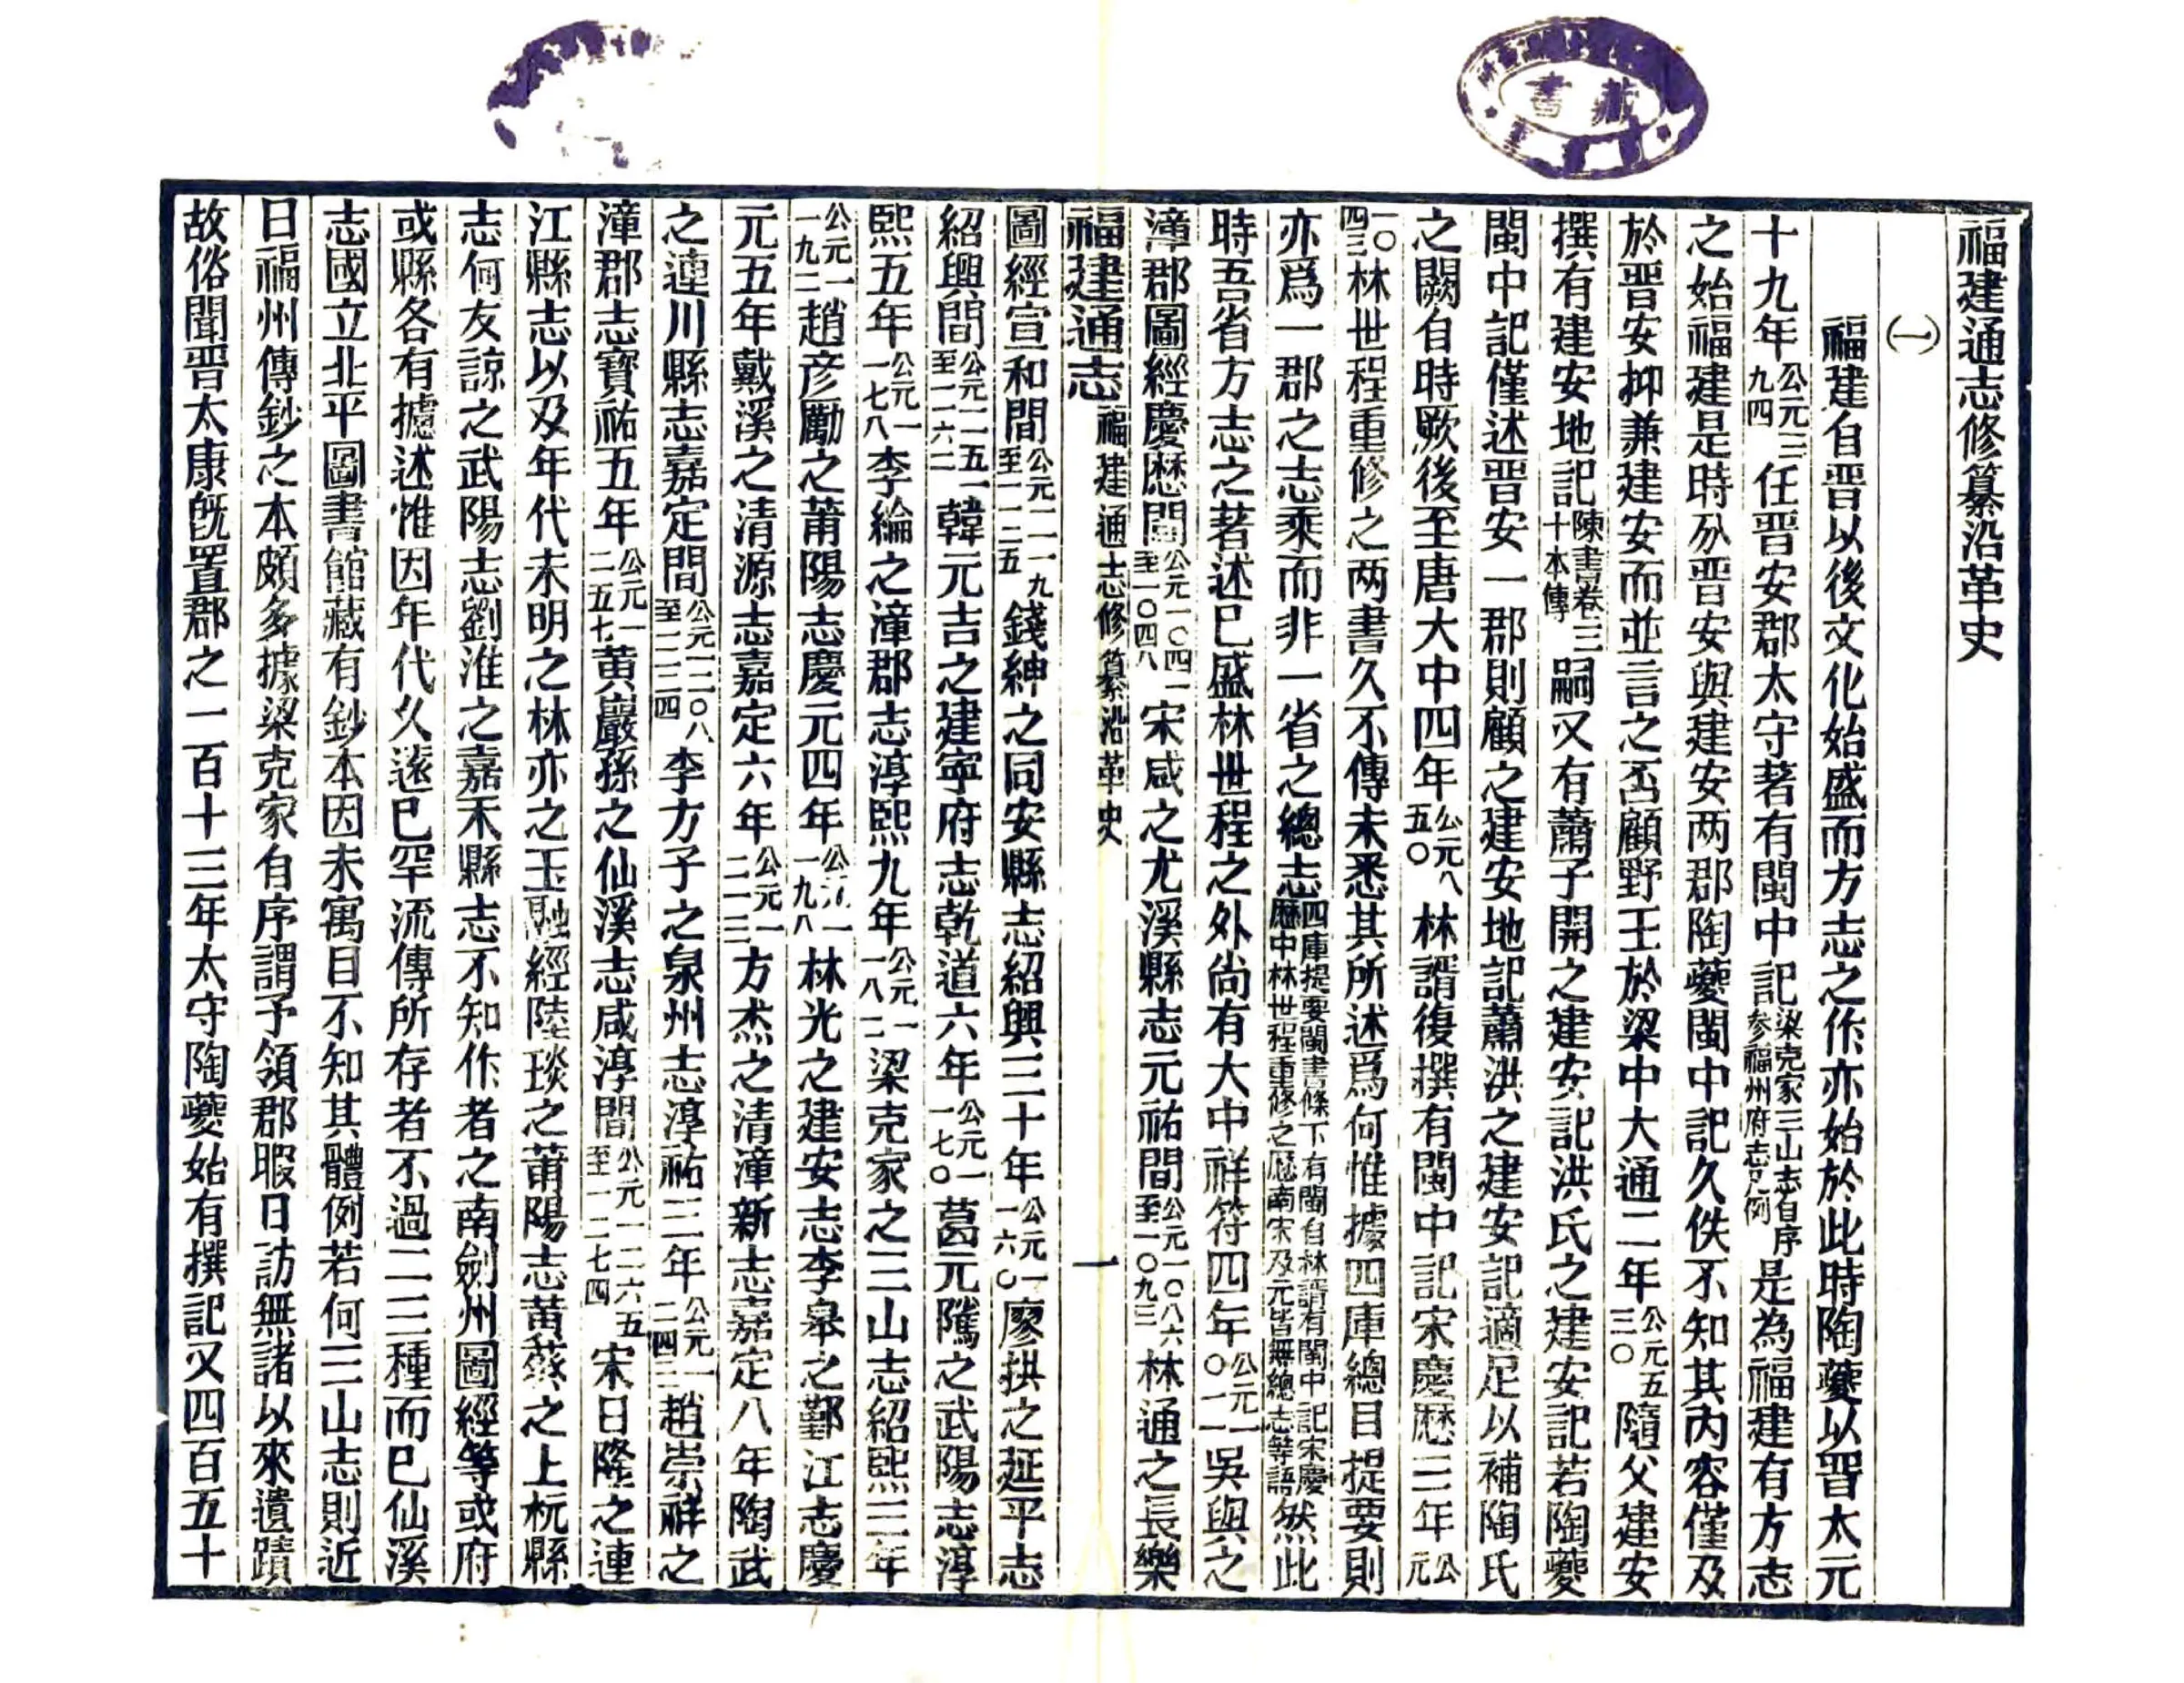 藏書
福建通志修纂沿革史
(一)
福建自晉以後文化始盛而方志之作亦始於此時陶夔以晉太元
十九年公元三九四任晉安郡太守著有閩中記梁克家三山志自序參福州府志凡例是為福建有方志
之始福建是時分晉安與建安两郡陶夔閩中記久佚不知其內容僅及
於晉安抑兼建安而並言之否顧野王於梁中大通二年公元五三〇隨父建安
撰有建安地記陳書卷三十本傳嗣又有蕭子開之建安記洪氏之建安記若陶夔
閩中記僅述晉安一郡則顧之建安地記蕭洪之建安記適足以補陶氏
之闕自時厥後至唐大中四年公元八五〇林諝復撰有閩中記宋慶歷三年公元
一〇四三林世程重修之两書久不傳未悉其所述爲何惟據四庫總目提要則
亦爲一郡之志乘而非一省之總志四庫提要閩書條下有閩自林諝有閩中記宋慶歷中林世程重修之歷南宋及元皆無總志等語然此
時吾省方志之著述已盛林世程之外尚有大中祥符四年公元一〇一一吳與之
漳郡圖經慶歷間公元一〇四一至一〇四八宋咸之尤溪縣志元祐間公元一〇八六至一〇九三林通之長樂
福建通志 福建通志修纂沿革史 一
圖經宣和間公元一一一九至一一二五錢紳之同安縣志紹興三十年公元一一六〇廖拱之延平志
紹興間公元一一五一至一一六二韓元吉之建寧府志乾道六年公元一一七〇葛元隲之武陽志淳
熙五年公元一一七八李綸之漳郡志淳熙九年公元一一八二梁克家之三山志紹熙三年
公元一一九二趙彥勵之莆陽志慶元四年公元一一九八林光之建安志李皋之鄞江志慶
元五年戴溪之清源志嘉定六年公元一二一三方杰之清漳新志嘉定八年陶武
之連川縣志嘉定間公元一二〇八至一二二四李方子之泉州志淳祐三年公元一二四三趙崇祥之
漳郡志寶祐五年公元一二五七黄巖孫之仙溪志咸淳間公元一二六五至一二七四宋日隆之連
江縣志以及年代未明之林亦之玉融經陸琰之莆陽志黃燊之上杭縣
志何友諒之武陽志劉淮之嘉禾縣志不知作者之南劍州圖經等或府
或縣各有據述惟因年代久遠已罕流傳所存者不過二三種而已仙溪
志國立北平圖書館藏有鈔本因未寓目不知其體例若何三山志則近
日福州傳鈔之本頗多據梁克家自序謂予領郡暇日訪無諸以來遺蹟
故俗聞晉太康旣置郡之一百十三年太守陶夔始有撰記又四百五十